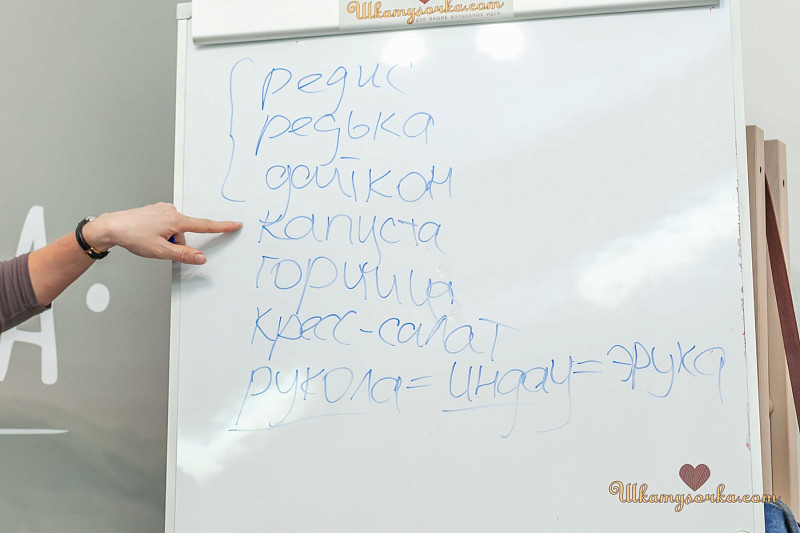 Шкатулочка.com
для ваших волшебных идей
редис
редька
дайкон
капуста
горчица
кресс-салат
рукола = индау = эрука
А.
Шкатулочка.com